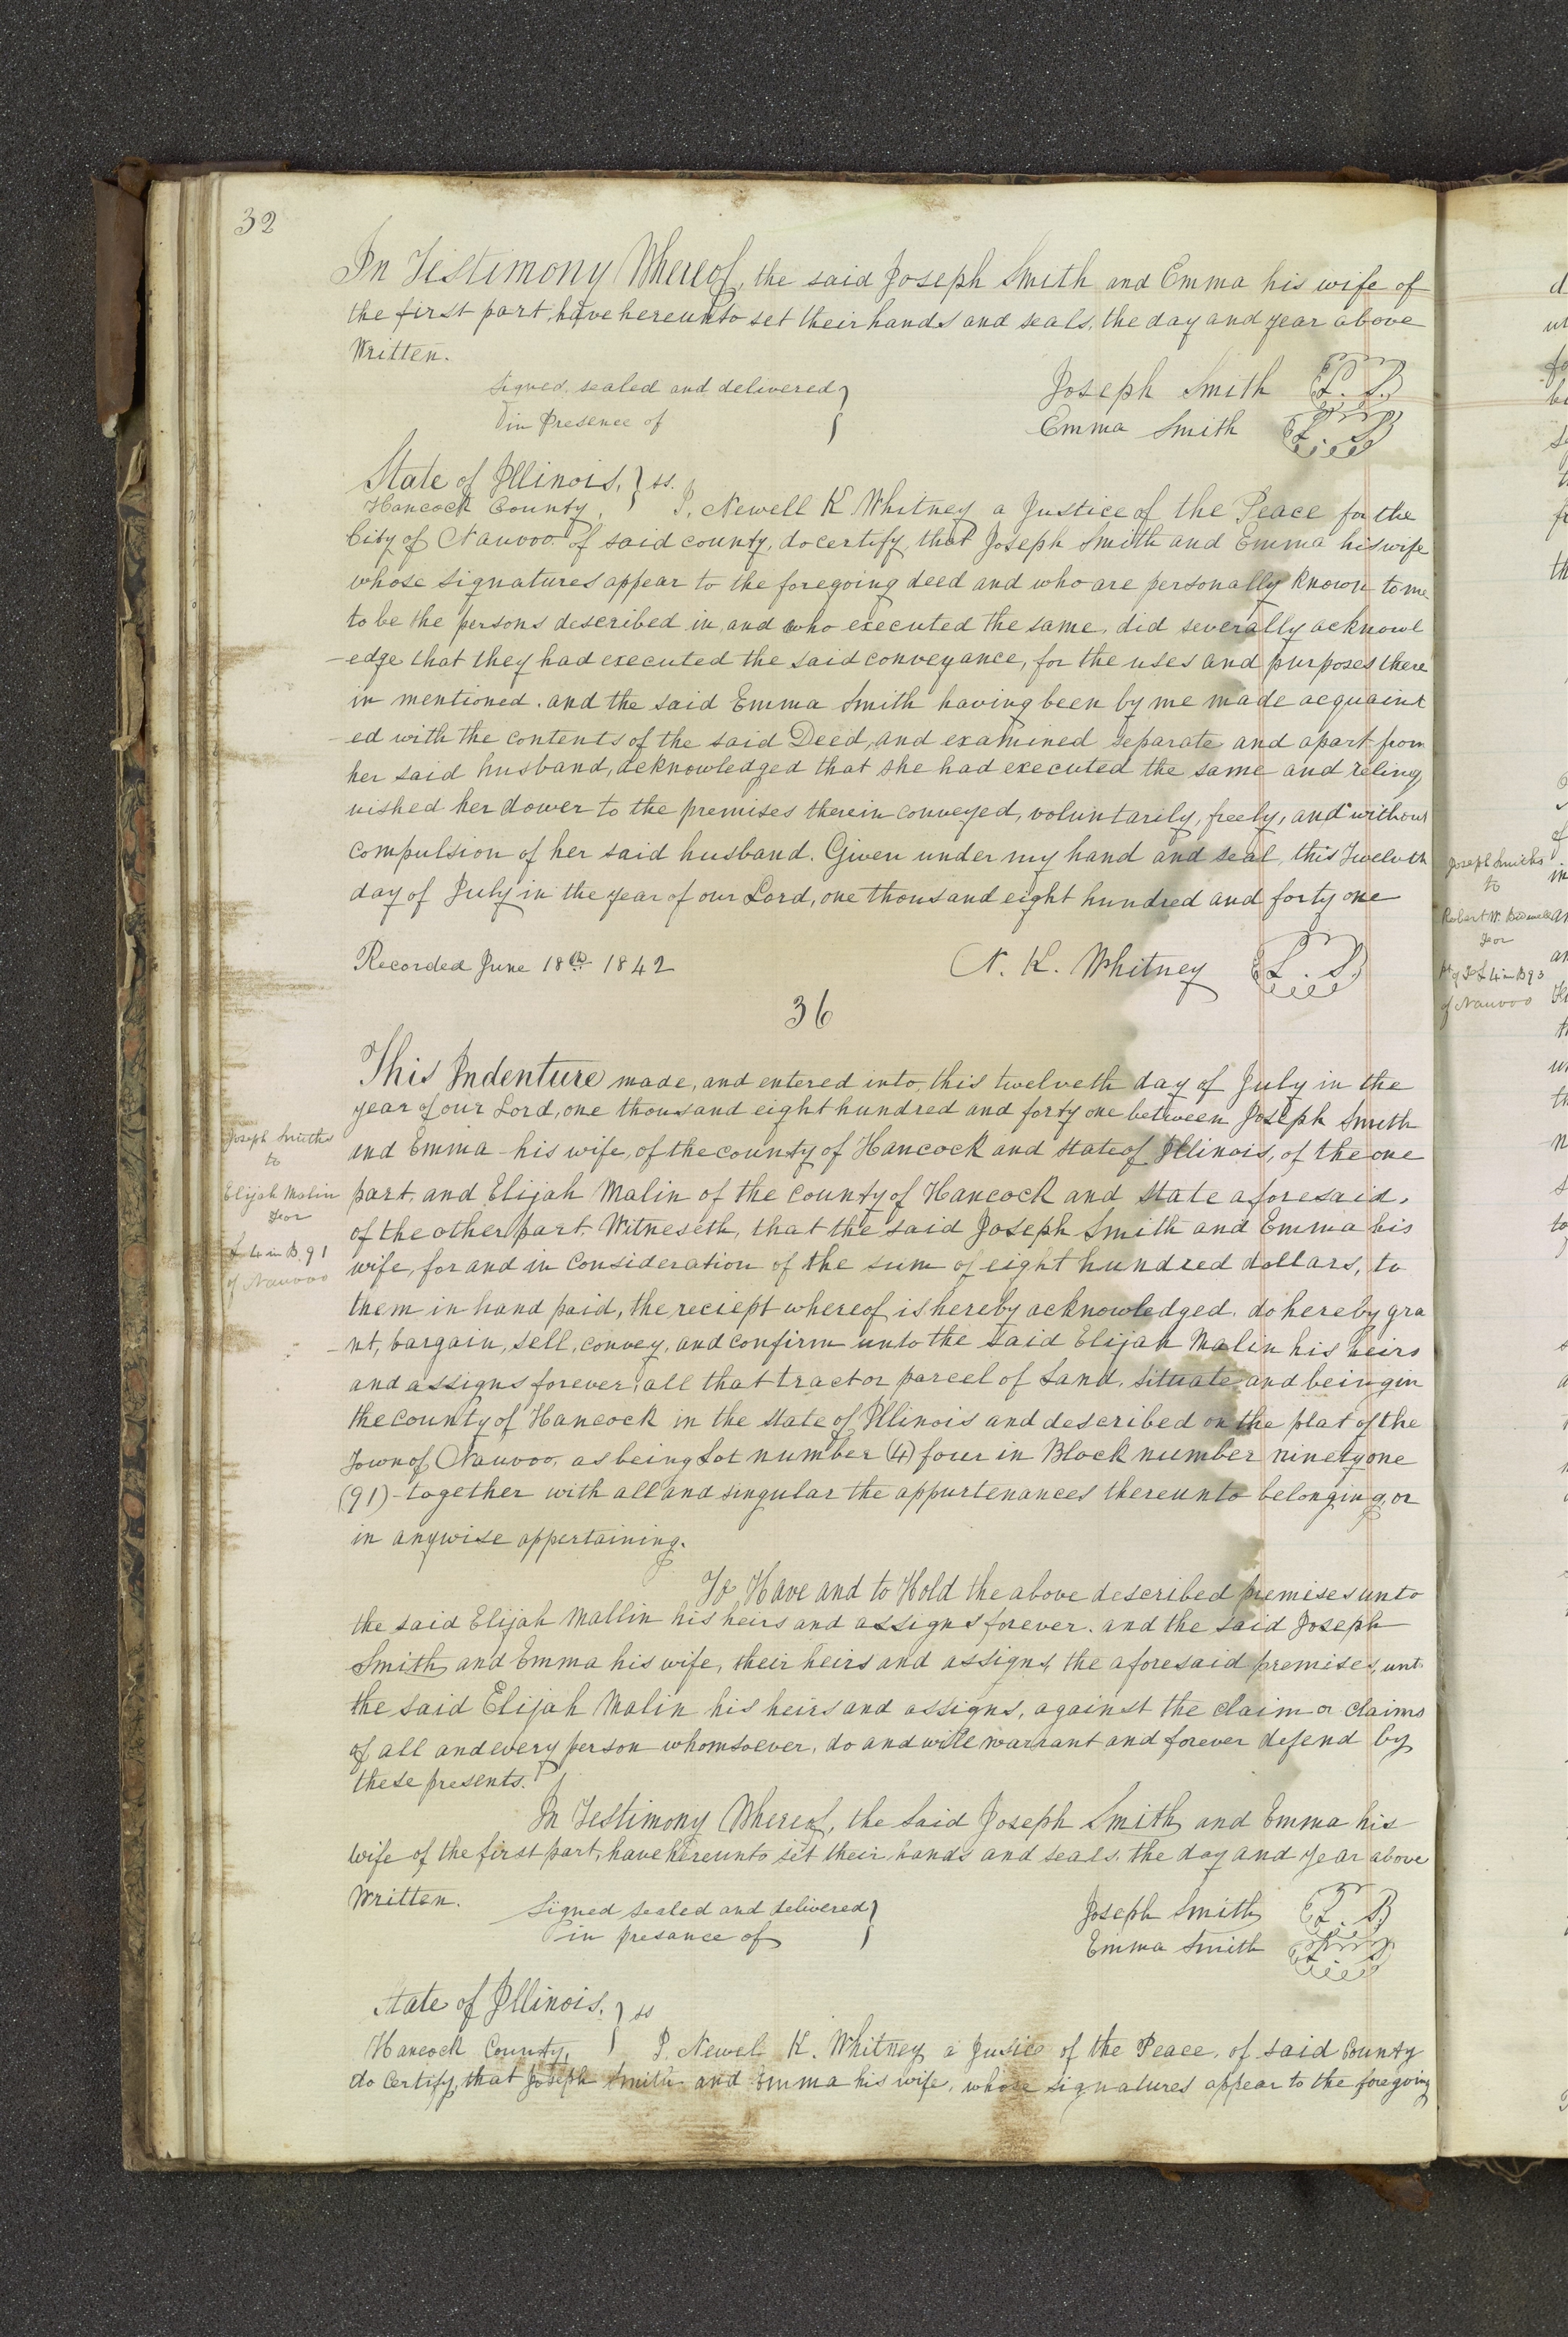 32
In Testimony Whereof, the said Joseph Smith and Emma his wife of
the first part, have hereunto set their hands and seals, the day and year above
Written.
Signed, sealed and delivered }
in Presence of
Joseph Smith L. S.
Emma Smith L. S.
State of Illinois, } ss.
Hancock County, I, Newell K Whitney a Justice of the Peace for the
City of Nauvoo of said county, do certify, that Joseph Smith and Emma his wife
whose signatures appear to the foregoing deed and who are personally known to me
to be the persons described in, and who executed the same, did severally acknowl
-edge that they had executed the said conveyance, for the uses and purposes there
in mentioned. and the said Emma Smith having been by me made acquaint
-ed with the contents of the said Deed, and examined separate and apart from
her said husband, acknowledged that she had executed the same and relinq
uished her dower to the premises therein conveyed, voluntarily, freely, and without
compulsion of her said husband. Given under my hand and seal, this Twelvth
day of July in the year of our Lord, one thousand eight hundred and forty one
Recorded June 18th 1842 N. K. Whitney L. S.
36
This Indenture made, and entered into, this twelveth day of July in the
year of our Lord, one thousand eight hundred and forty one between Joseph Smith
and Emma his wife, of the county of Hancock and State of Illinois, of the one
part, and Elijah Malin of the county of Hancock and State aforesaid,
of the other part. Witneseth, that the said Joseph Smith and Emma his
wife, for and in consideration of the sum of eight hundred dollars, to
them in hand paid, the reciept whereof is hereby acknowledged. do hereby gra
-nt, bargain, sell, convey, and confirm unto the said Elijah Malin his heirs
and assigns forever, all that tract or parcel of Land, situate and being in
the county of Hancock in the State of Illinois and described on the plat of the
Town of Nauvoo, as being Lot number (4) four in Block number ninety one
(91) - together with all and singular the appurtenances thereunto belonging, or
in anywise appertaining.
To Have and to Hold the above described premises unto
the said Elijah Mallin his heirs and assigns forever. and the said Joseph
Smith, and Emma his wife, their heirs and assigns, the aforesaid premises, unt
the said Elijah Malin his heirs and assigns, against the claim or claims
of all and every person whomsoever, do and will warrant and forever defend by
these presents.
In Testimony Whereof, the said Joseph Smith and Emma his
wife of the first part, have hereunto set their hands and seals, the day and year above
Written.
Signed sealed and delivered }
in presance of
Joseph Smith L. S.
Emma Smith L. S.
State of Illinois, } ss
Hancock County, I, Newel K. Whitney a Jusice of the Peace, of said County
do Certify, that Joseph Smith and Emma his wife, whose signatures appear to the foregoing
Joseph Smiths
to
Elijah Malin
For
L 4 in B. 91
of Nauvoo
Joseph Smiths
to
Robert W.
For
L 4 in B 93
of Nauvoo